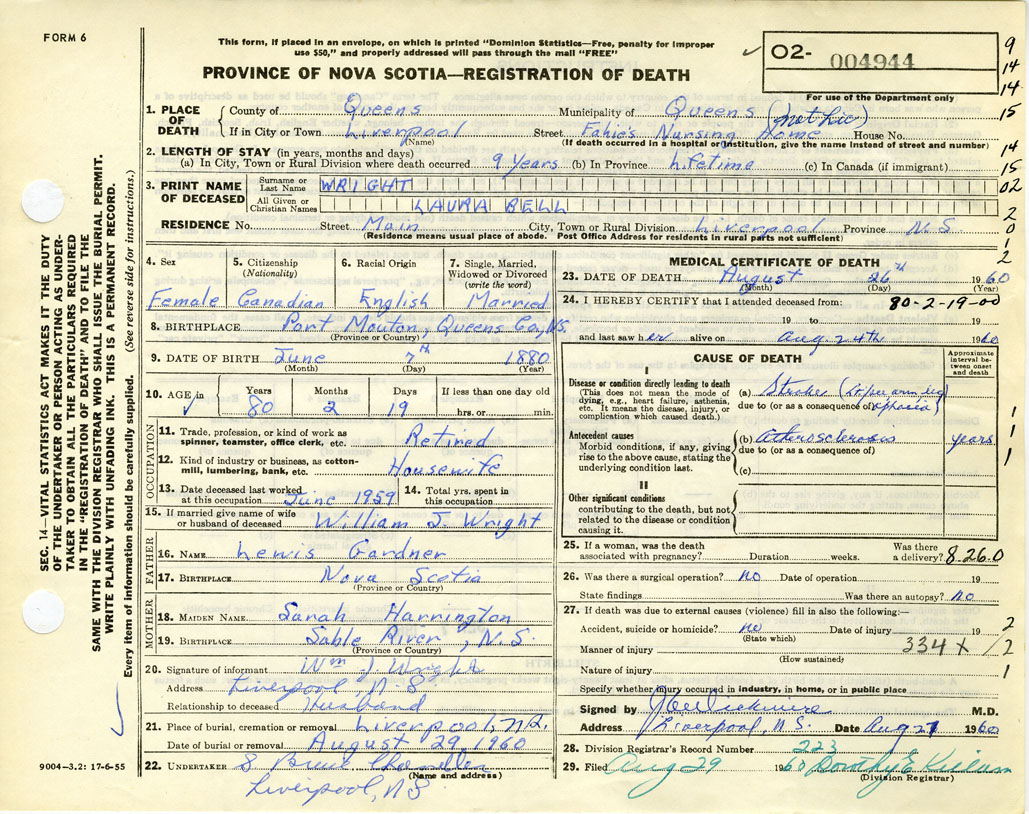 FORM 6
This form, if placed in an envelope, on which is printed "Dominion Statistics—Free, penalty for improper
use $50," and properly addressed will pass through the mail "FREE"
PROVINCE OF NOVA SCOTIA—REGISTRATION OF DEATH
✓ 02- 004944
For use of the Department only
9
14
14
15
14
15
02
2
0
1
2
1. PLACE OF DEATH
County of Queens Municipality of Queens (not Inc)
If in City or Town Liverpool Street Fahie's Nursing Home House No.
(Name) (If death occurred in a hospital or institution, give the name instead of street and number)
2. LENGTH OF STAY (in years, months and days)
(a) In City, Town or Rural Division where death occurred 9 years (b) In Province Lifetime (c) In Canada (if immigrant)
3. PRINT NAME OF DECEASED
Surname or Last Name WRIGHT
All Given or Christian Names LAURA BELL
RESIDENCE No. Street Main City, Town or Rural Division Liverpool Province N.S.
(Residence means usual place of abode. Post Office Address for residents in rural parts not sufficient)
4. Sex Female
5. Citizenship (Nationality) Canadian
6. Racial Origin English
7. Single, Married, Widowed or Divorced (write the word) Married
8. BIRTHPLACE Port Mouton, Queens Co., N.S.
(Province or Country)
9. DATE OF BIRTH June 7th 1880
(Month) (Day) (Year)
10. AGE in Years Months Days If less than one day old
✓ 80 2 19 hrs. or min.
OCCUPATION
11. Trade, profession, or kind of work as spinner, teamster, office clerk, etc. Retired
12. Kind of industry or business, as cotton-mill, lumbering, bank, etc. Housewife
13. Date deceased last worked at this occupation June 1959 14. Total yrs. spent in this occupation
15. If married give name of wife or husband of deceased William J. Wright
FATHER
16. NAME Lewis Gardner
17. BIRTHPLACE Nova Scotia
(Province or Country)
MOTHER
18. MAIDEN NAME Sarah Harrington
19. BIRTHPLACE Sable River, N.S.
(Province or Country)
20. Signature of informant Wm J. Wright
Address Liverpool, N.S.
Relationship to deceased Husband
21. Place of burial, cremation or removal Liverpool, N.S.
Date of burial or removal August 29, 1960
22. UNDERTAKER Chandler
(Name and address)
Liverpool, N.S.
MEDICAL CERTIFICATE OF DEATH
23. DATE OF DEATH August 26th 1960
(Month) (Day) (Year)
24. I HEREBY CERTIFY that I attended deceased from: 80-2-19-00
19 to 19
and last saw her alive on Aug. 24th 1960
CAUSE OF DEATH
Approximate interval between onset and death
I
Disease or condition directly leading to death
(This does not mean the mode of dying, e.g., heart failure, asthenia, etc. It means the disease, injury, or complication which caused death.)
(a) Stroke
due to (or as a consequence of) aphasia)
Antecedent causes
Morbid conditions, if any, giving rise to the above cause, stating the underlying condition last.
(b) Atherosclerosis years
due to (or as a consequence of)
(c)
II
Other significant conditions
contributing to the death, but not related to the disease or condition causing it.
1
1
1
25. If a woman, was the death associated with pregnancy? Duration weeks. Was there a delivery? 8.26.0
26. Was there a surgical operation? no Date of operation 19
State findings Was there an autopsy? no
27. If death was due to external causes (violence) fill in also the following:—
Accident, suicide or homicide? no Date of injury 19 2
(State which)
Manner of injury 334X /2
(How sustained)
Nature of injury 1
Specify whether injury occurred in industry, in home, or in public place
Signed by Wickwire M.D.
Address Liverpool, N.S. Date Aug 27 1960
28. Division Registrar's Record Number 223
29. Filed Aug 29 1960 Dorothy E.
(Division Registrar)
9004-3.2: 17-6-55
SEC. 14—VITAL STATISTICS ACT MAKES IT THE DUTY
OF THE UNDERTAKER OR PERSON ACTING AS UNDER-
TAKER TO OBTAIN ALL THE PARTICULARS REQUIRED
IN THE "REGISTRATION OF DEATH" AND TO FILE THE
SAME WITH THE DIVISION REGISTRAR WHO SHALL ISSUE THE BURIAL PERMIT.
WRITE PLAINLY WITH UNFADING INK. THIS IS A PERMANENT RECORD.
Every item of information should be carefully supplied. (See reverse side for instructions.)